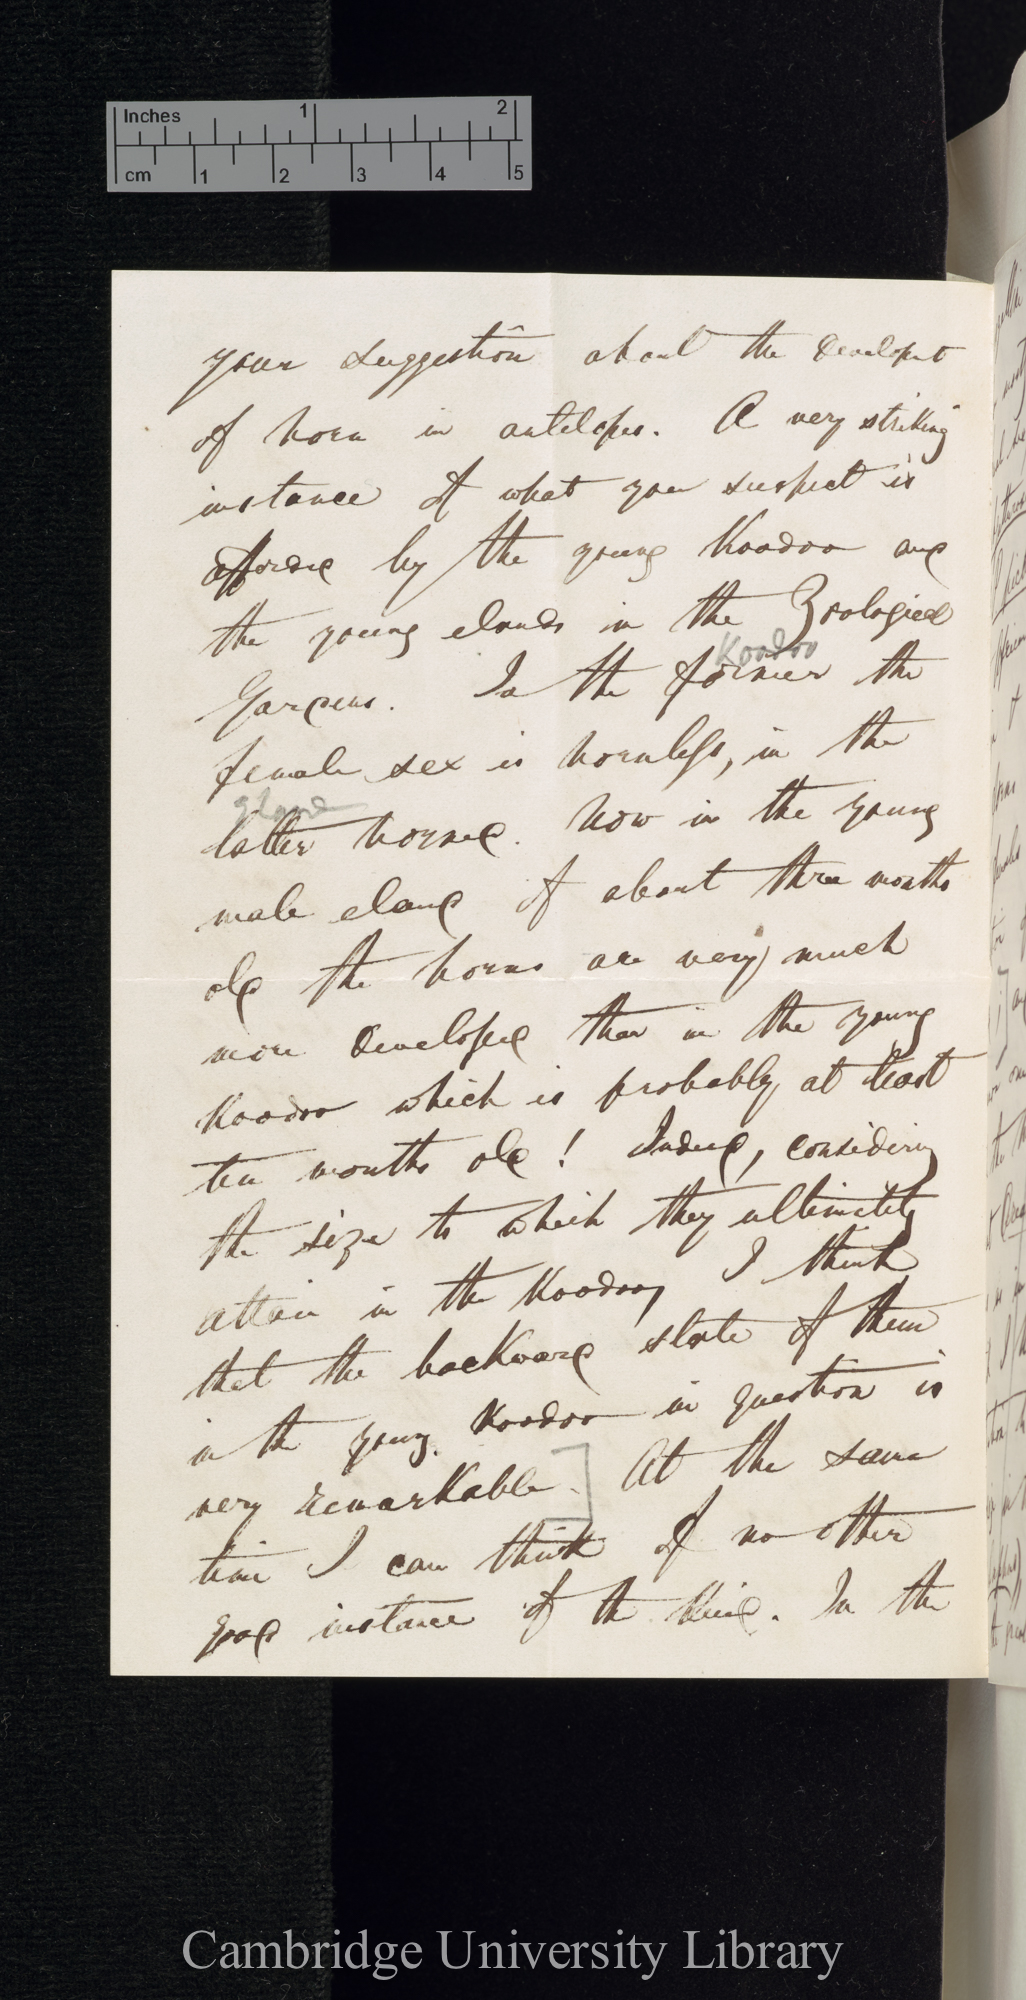 Inches 1 2
cm 1 2 3 4 5
your suggestion about the developt
of horn in antelopes. A very striking
instance of what you suspect is
afforded by the young Koodoo and
the young elands in the Zoological
Koodoo
Gardens. In the former the
female sex is hornless, in the
eland
latter horned. Now in the young
male eland of about three months
old the horns are very much
more developed than in the young
Koodoo which is probably at least
ten months old! Indeed, considering
the size to which they ultimately
attain in the Koodoo, I think
that the backward state of them
in the young Koodoo in question is
very remarkable.] At the same
time I can think of no other
good instance of the kind. In the
Cambridge University Library